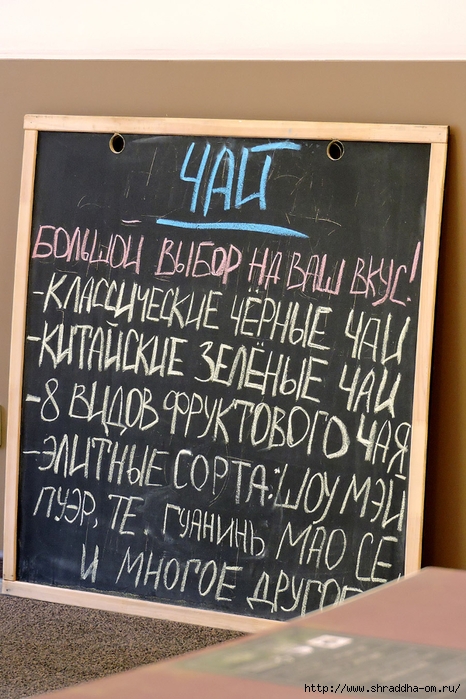 ЧАЙ
БОЛЬШОЙ ВЫБОР НА ВАШ ВКУС!
-КЛАССИЧЕСКИЕ ЧЁРНЫЕ ЧАИ
-КИТАЙСКИЕ ЗЕЛЁНЫЕ ЧАИ
-8 ВИДОВ ФРУКТОВОГО ЧАЯ
-ЭЛИТНЫЕ СОРТА: ШОУ МЭЙ
ПУЭР, ТЕ ГУАНИНЬ МАО СЕ
И МНОГОЕ ДРУГОЕ
http://www.shraddha-om.ru/